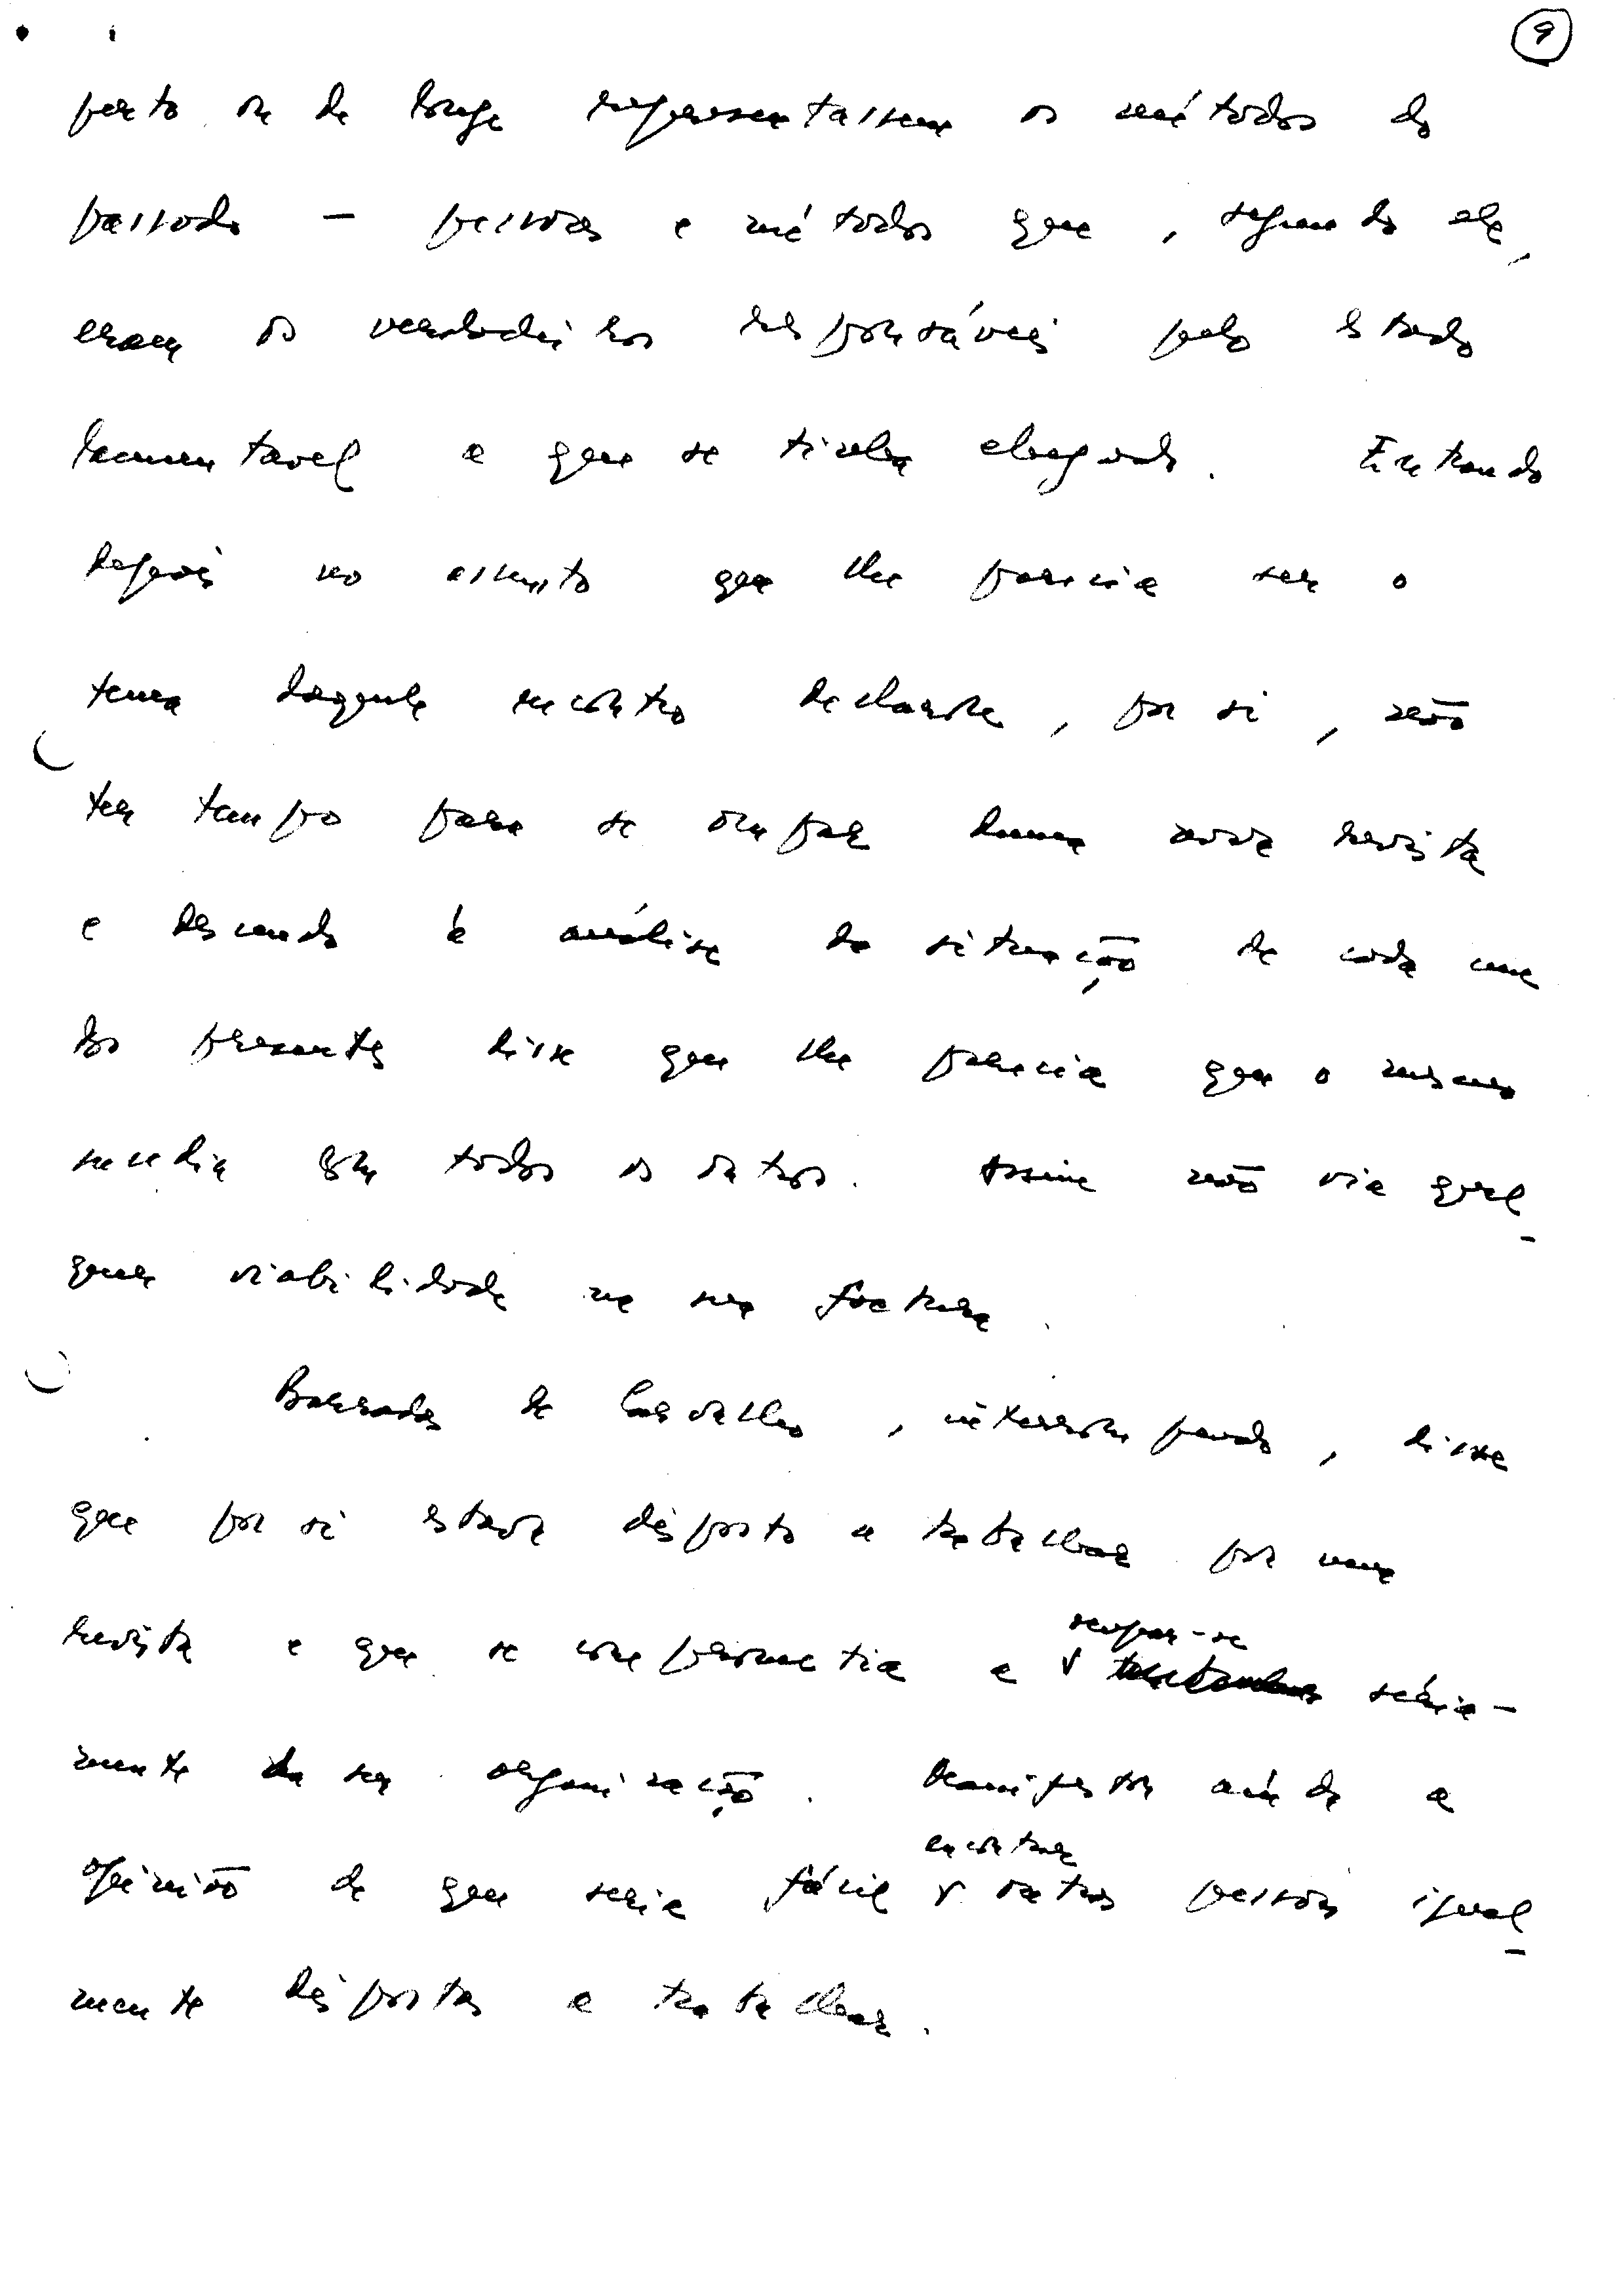 9
perto ou de longe representassem os métodos do
passado – pessoas e métodos que, segundo ele,
eram os verdadeiros responsáveis pelo estado
lamentavel a que se tinha chegado. Entrando
depois no assunto que lhe parecia ser o
tema daquele encontro declarou, por si, não
ter tempo para se ocupar duma nova revista
e descendo à análise da situação de cada um
dos presentes disse que lhe parecia que o mesmo
sucedia com todos os outros. Assim não via qual-
quer viabilidade na sua factura.
Barradas de Carvalho, interrompendo, disse
que por si estava disposto a trabalhar por uma
revista e que se comprometia a ocupar-se séria-
mente da sua organização. Manifestou ainda a
opinião de que seria fácil encontrar outras pessoas igual-
mente dispostas a trabalhar.